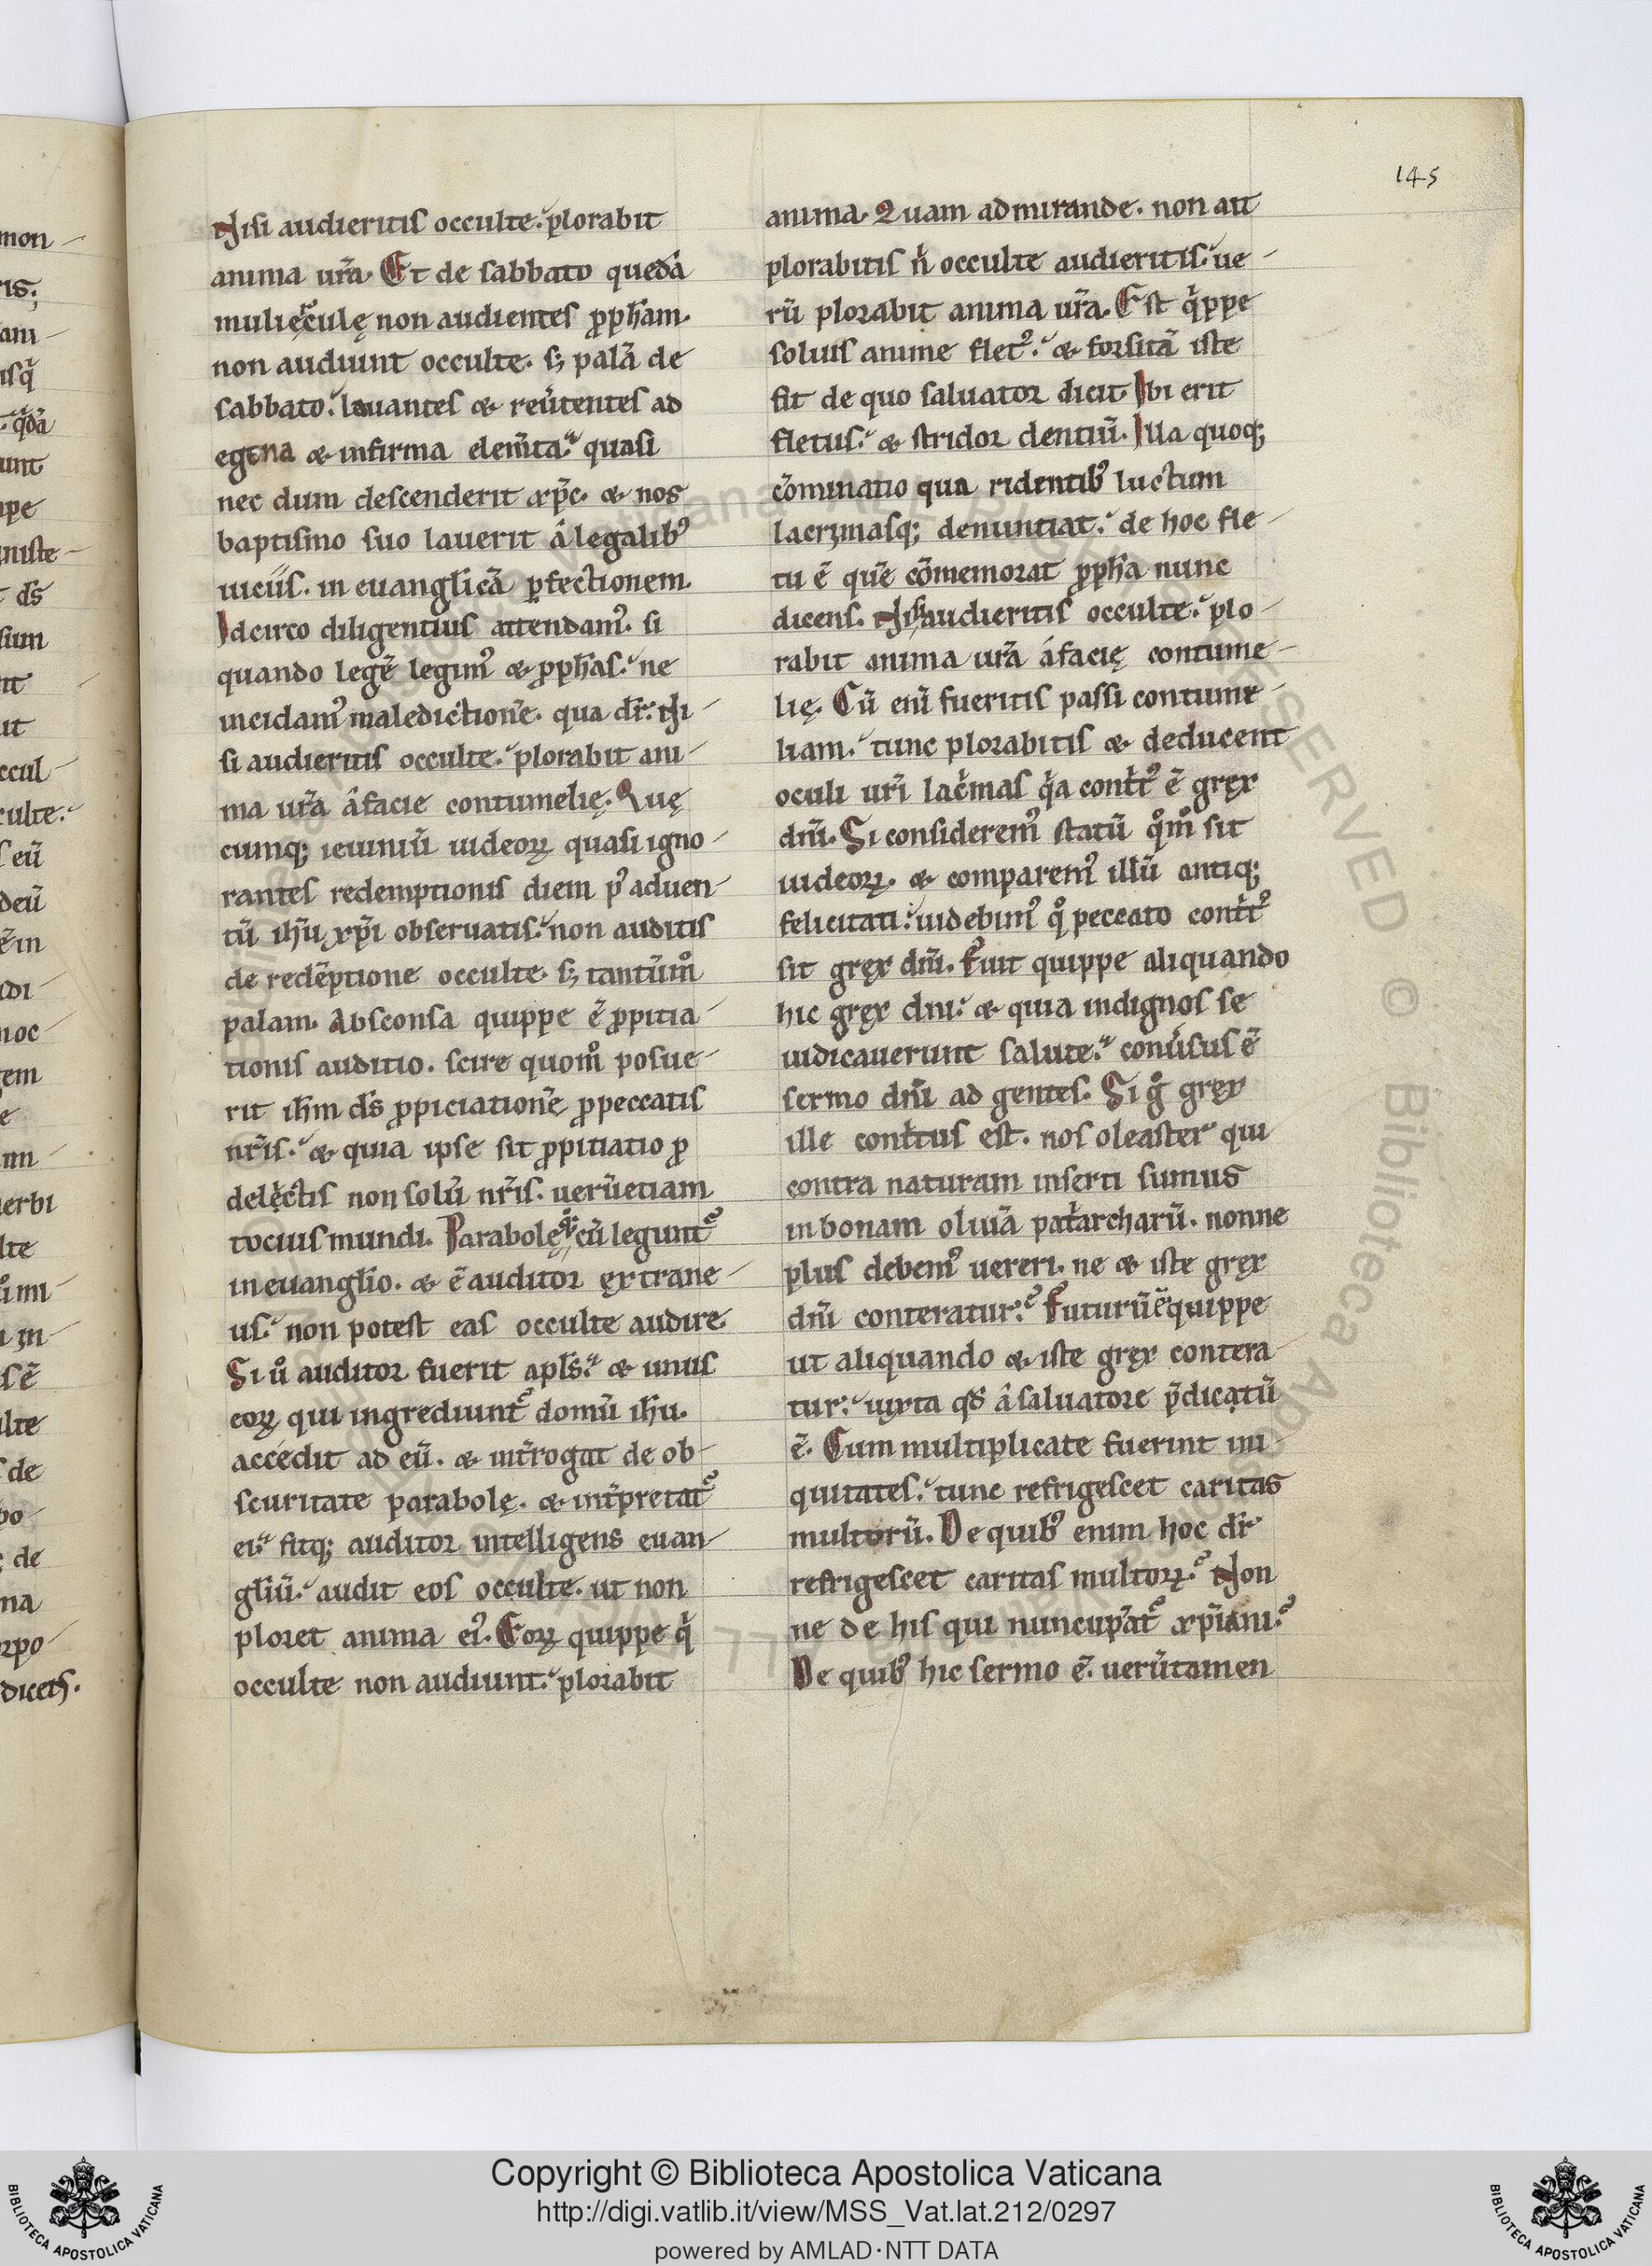 145
Nisi audieritis occulte. plorabit
anima ur̄a. Et de sabbato quedā
mulięculę non audientes ꝓpħam.
non audiunt occulte. sꝫ palā de
sabbato. lauantes & reu̅tentes ad
egena & infirma elem̄ta. quasi
nec dum descenderit xp̄c. & nos
baptismo suo lauerit á legalibꝰ
uiciis. in euangl̄icā ꝑfectionem.
Idcirco diligentius attendamꝰ. si
quando legē legimꝰ & ꝓpħas. ne
incidamꝰ maledictionē. qua dr̄. Ni-
si audieritis occulte. plorabit ani-
ma ur̄a áfacie contumelię. Quę
cumq; ieiuniū iudeoꝝ quasi igno-
rantes redemptionis diem pꝰ aduen-
tū ihū xp̄i obseruatis. non auditis
de redēptione occulte. sꝫ tantūm̊
palam. Absconsa quippe ē ꝓpitia-
tionis auditio. scire quom̊ posue-
rit ihm̄ d̄s ꝓpiciationē ꝓpeccatis
nr̄is. & quia ipse sit ꝓpitiatio ꝓ
delęctis non solū nr̄is. uerūetiam
tocius mundi. Parabolę cū leguntᷣ
in euangl̄io. & ē auditor extrane-
us. non potest eas occulte audire.
Si ů auditor fuerit apl̄s. & unus
eoꝝ qui ingrediuntᷣ domū ihū.
accedit ad eū. & int̄rogat de ob-
scuritate parabolę. & int̄pretatᷣ
ei. fitq; auditor intelligens euan-
gl̄iū. audit eos occulte. ut non
ploret anima eiꝰ. Eoꝝ quippe qͥ
occulte non audiunt. plorabit
anima. Quam admirande. non ait
plorabitis n̄ occulte audieritis. ue-
rū plorabit anima ur̄a. Est qͥppe
solius anime fletꝰ. & forsitā iste
fit de quo saluator dicit. Ibi erit
fletus. & stridor dentiū. Illa quoq;
cōminatio qua ridentibꝰ luctum
lacrimasq; denuntiat. de hoc fle-
tu ē quē cōmemorat ꝓpħa nunc
dicens. Nisi audieritis occulte. plo-
rabit anima ur̄a áfacię contume-
lię. Cū eni̅ fueritis passi contume-
liam. tunc plorabitis & deducent
oculi ur̄i lacͥmas qͥa contͥtꝰ ē gręx
dn̄i. Si consideremꝰ statū qͦm̊ sit
iudeoꝝ. & comparemꝰ illū antiq;
felicitati. uidebimꝰ qͦ peccato contͥtꝰ
sit gręx dn̄i. Fuit quippe aliquando
hic gręx dn̄i. & quia indignos se
iudicauerunt salute. conu̅sus ē
sermo dn̄i ad gentes. Si gͦ gręx
ille contͥtus est. nos oleaster qui
contra naturam inserti sumus
in bonam oliuā patͥarcharū. nonne
plus debemꝰ uereri. ne & iste gręx
dn̄i conteratur. Futurū ē quippe
ut aliquando & iste gręx contera-
tur. iuxta qd̄ á saluatore p̄dicatū
ē. Cum multiplicate fuerint ini-
quitates. tunc refrigescet caritas
multorū. De quibꝰ enim hoc dr̄
refrigescet caritas multoꝝ. Non-
ne de his qui nuncupātᷣ xp̄iani.
De quibꝰ hic sermo ē. ueru̅tamen
Copyright © Biblioteca Apostolica Vaticana
http://digi.vatlib.it/view/MSS_Vat.lat.212/0297
powered by AMLAD·NTT DATA
BIBLIOTECA APOSTOLICA VATICANA
BIBLIOTECA APOSTOLICA VATICANA